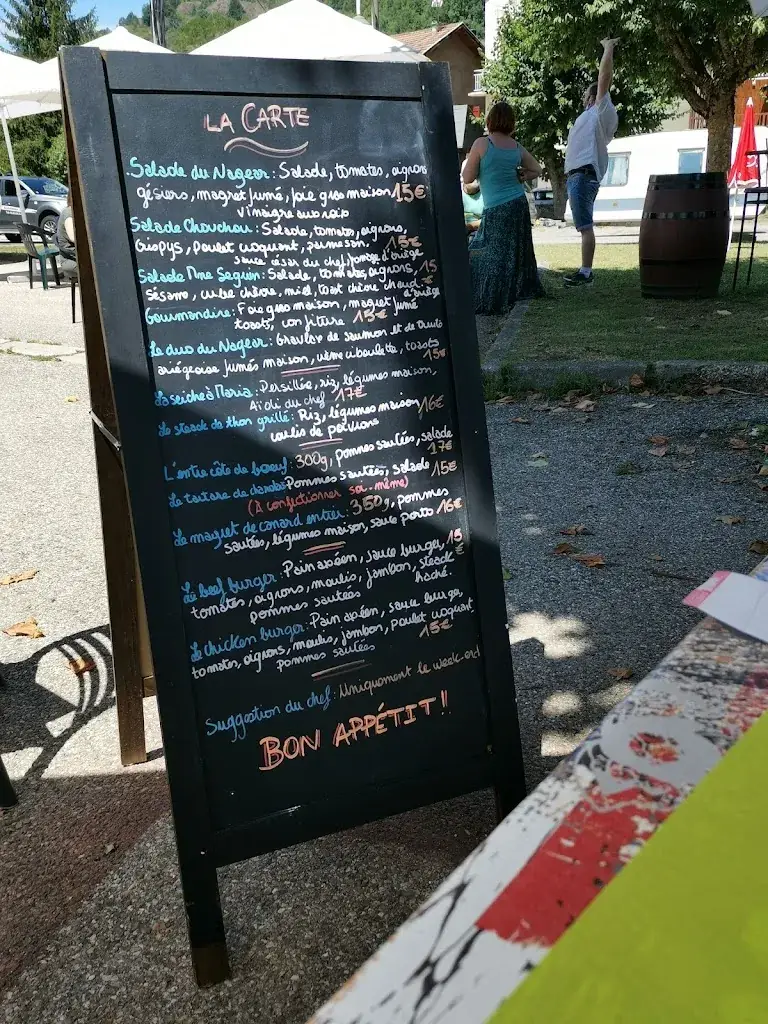 LA CARTE
Salade du Nageur : Salade, tomates, oignons
gésiers, magret fumé, foie gras maison 15€
vinaigre aux noix
Salade Chouchou : Salade, tomates, oignons,
Crispys, poulet croquant, parmesan, 15€
sauce césar du chef,
Salade Mme Seguin : Salade, tomates, oignons, 15
sésame, cube chèvre, miel, toast chèvre chaud €
Gourmandire : Foie gras maison, magret fumé
toasts, confiture 15€
Le duo du Nageur : Gravlax de saumon et de truite
ariégeoise fumés maison, crème ciboulette, toasts
15€
La seiche à Maria : Persillée, riz, légumes maison,
Aïoli du chef 17€
Le steack de thon grillé : Riz, légumes maison 16€
coulis de poivrons
L'entre côte de boeuf : 300g, pommes sautées, salade
17€
Le tartare de Pommes sautées, salade 15€
(A confectionner soi-même)
Le magret de canard entier : 350g, pommes
sautées, légumes maison, sauce porto 16€
Le beef burger : Pain maison, sauce burger, 15
tomates, oignons, moulis, jambon, steack €
haché.
pommes sautées
Le chicken burger : Pain maison, sauce burger,
tomates, oignons, moulis, jambon, poulet croquant
15€
pommes sautées
Suggestion du chef : Uniquement le week-end
BON APPÉTIT !!